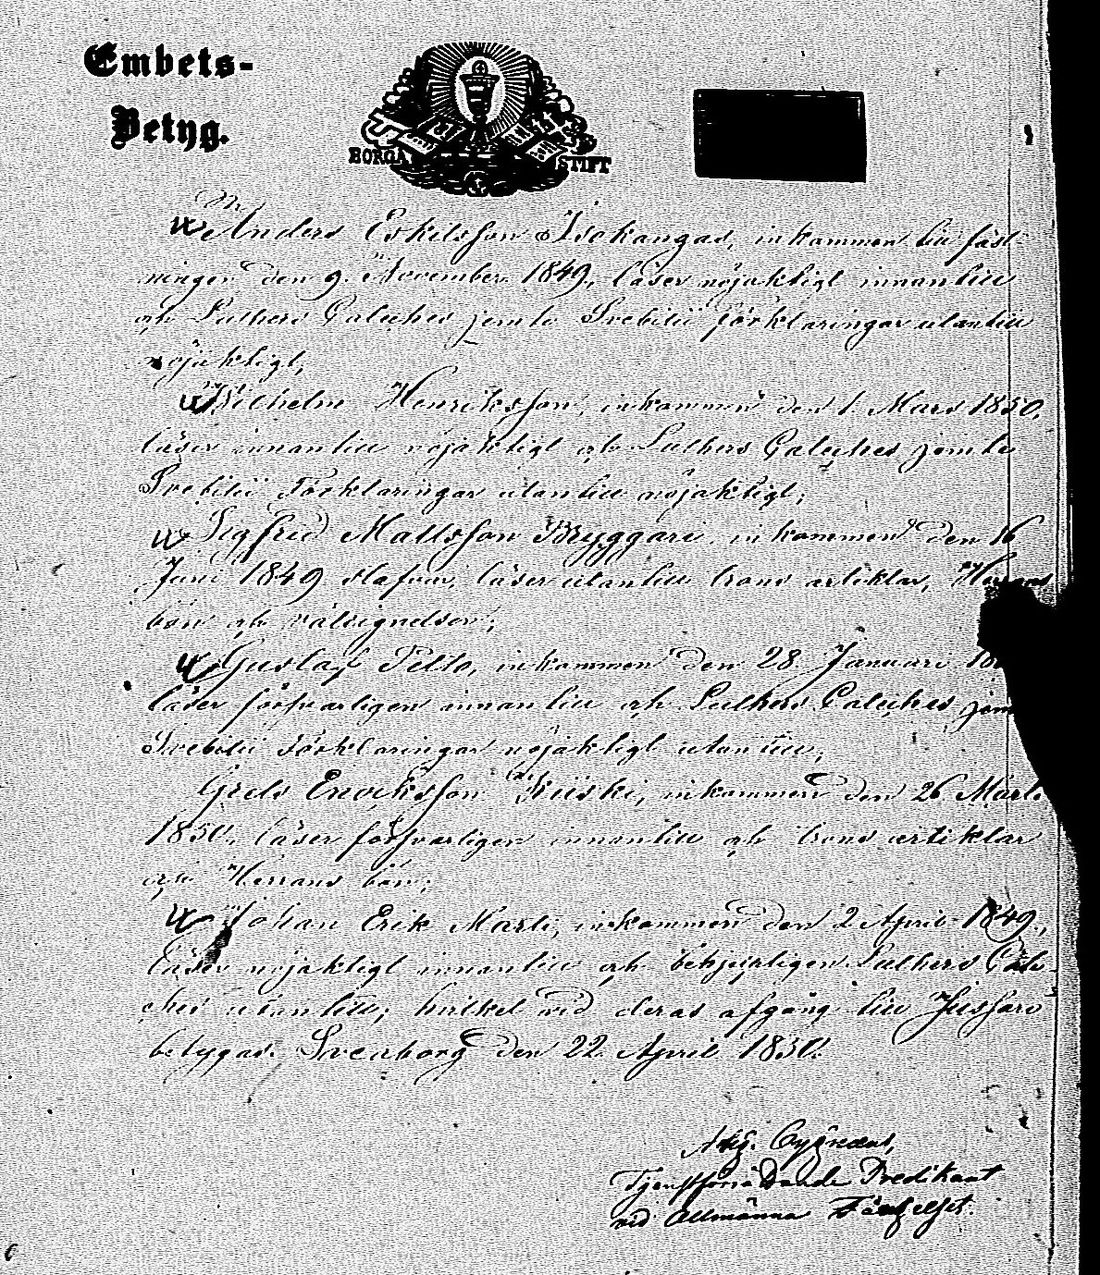 Embets-
Betyg.
BORGÅ STIFT
Anders Eskilsson Isokangas, inkommen till fäst-
ningen den 9. November 1849, läser nöjaktigt innantill
och Luthers Cateches jemte Svebilii förklaringar utantill
nöjaktigt;
Wilhelm Henriksson, inkommen den 1 Mars 1850,
läser innantill nöjaktigt och Luthers Cateches jemte
Svebilii Förklaringar utantill nöjaktigt;
Sigfrid Mattsson Ryggari, inkommen den 16
Juni 1849 läser utantill trons artiklar, Herrans
bön och välsignelsen;
Gustaf Pelto, inkommen den 28 Januari
läser försvarligen innantill och Luthers Cateches jemte
Svebilii Förklaringar nöjaktigt utantill;
Grels Ericksson Kiiski, inkommen den 26 Mars
1850, läser försvarligen innantill och trons artiklar
och Herrans bön;
Johan Erik Marti, inkommen den 2 April 1849,
läser nöjaktigt innantill och behjertligen Luthers Cate-
ches utantill; hvilket vid deras afgång till Jussarö
betygas. Sveaborg den 22. April 1850.
Cygnæus,
Tjenstförrättande Predikant
vid Allmänna Fängelset.